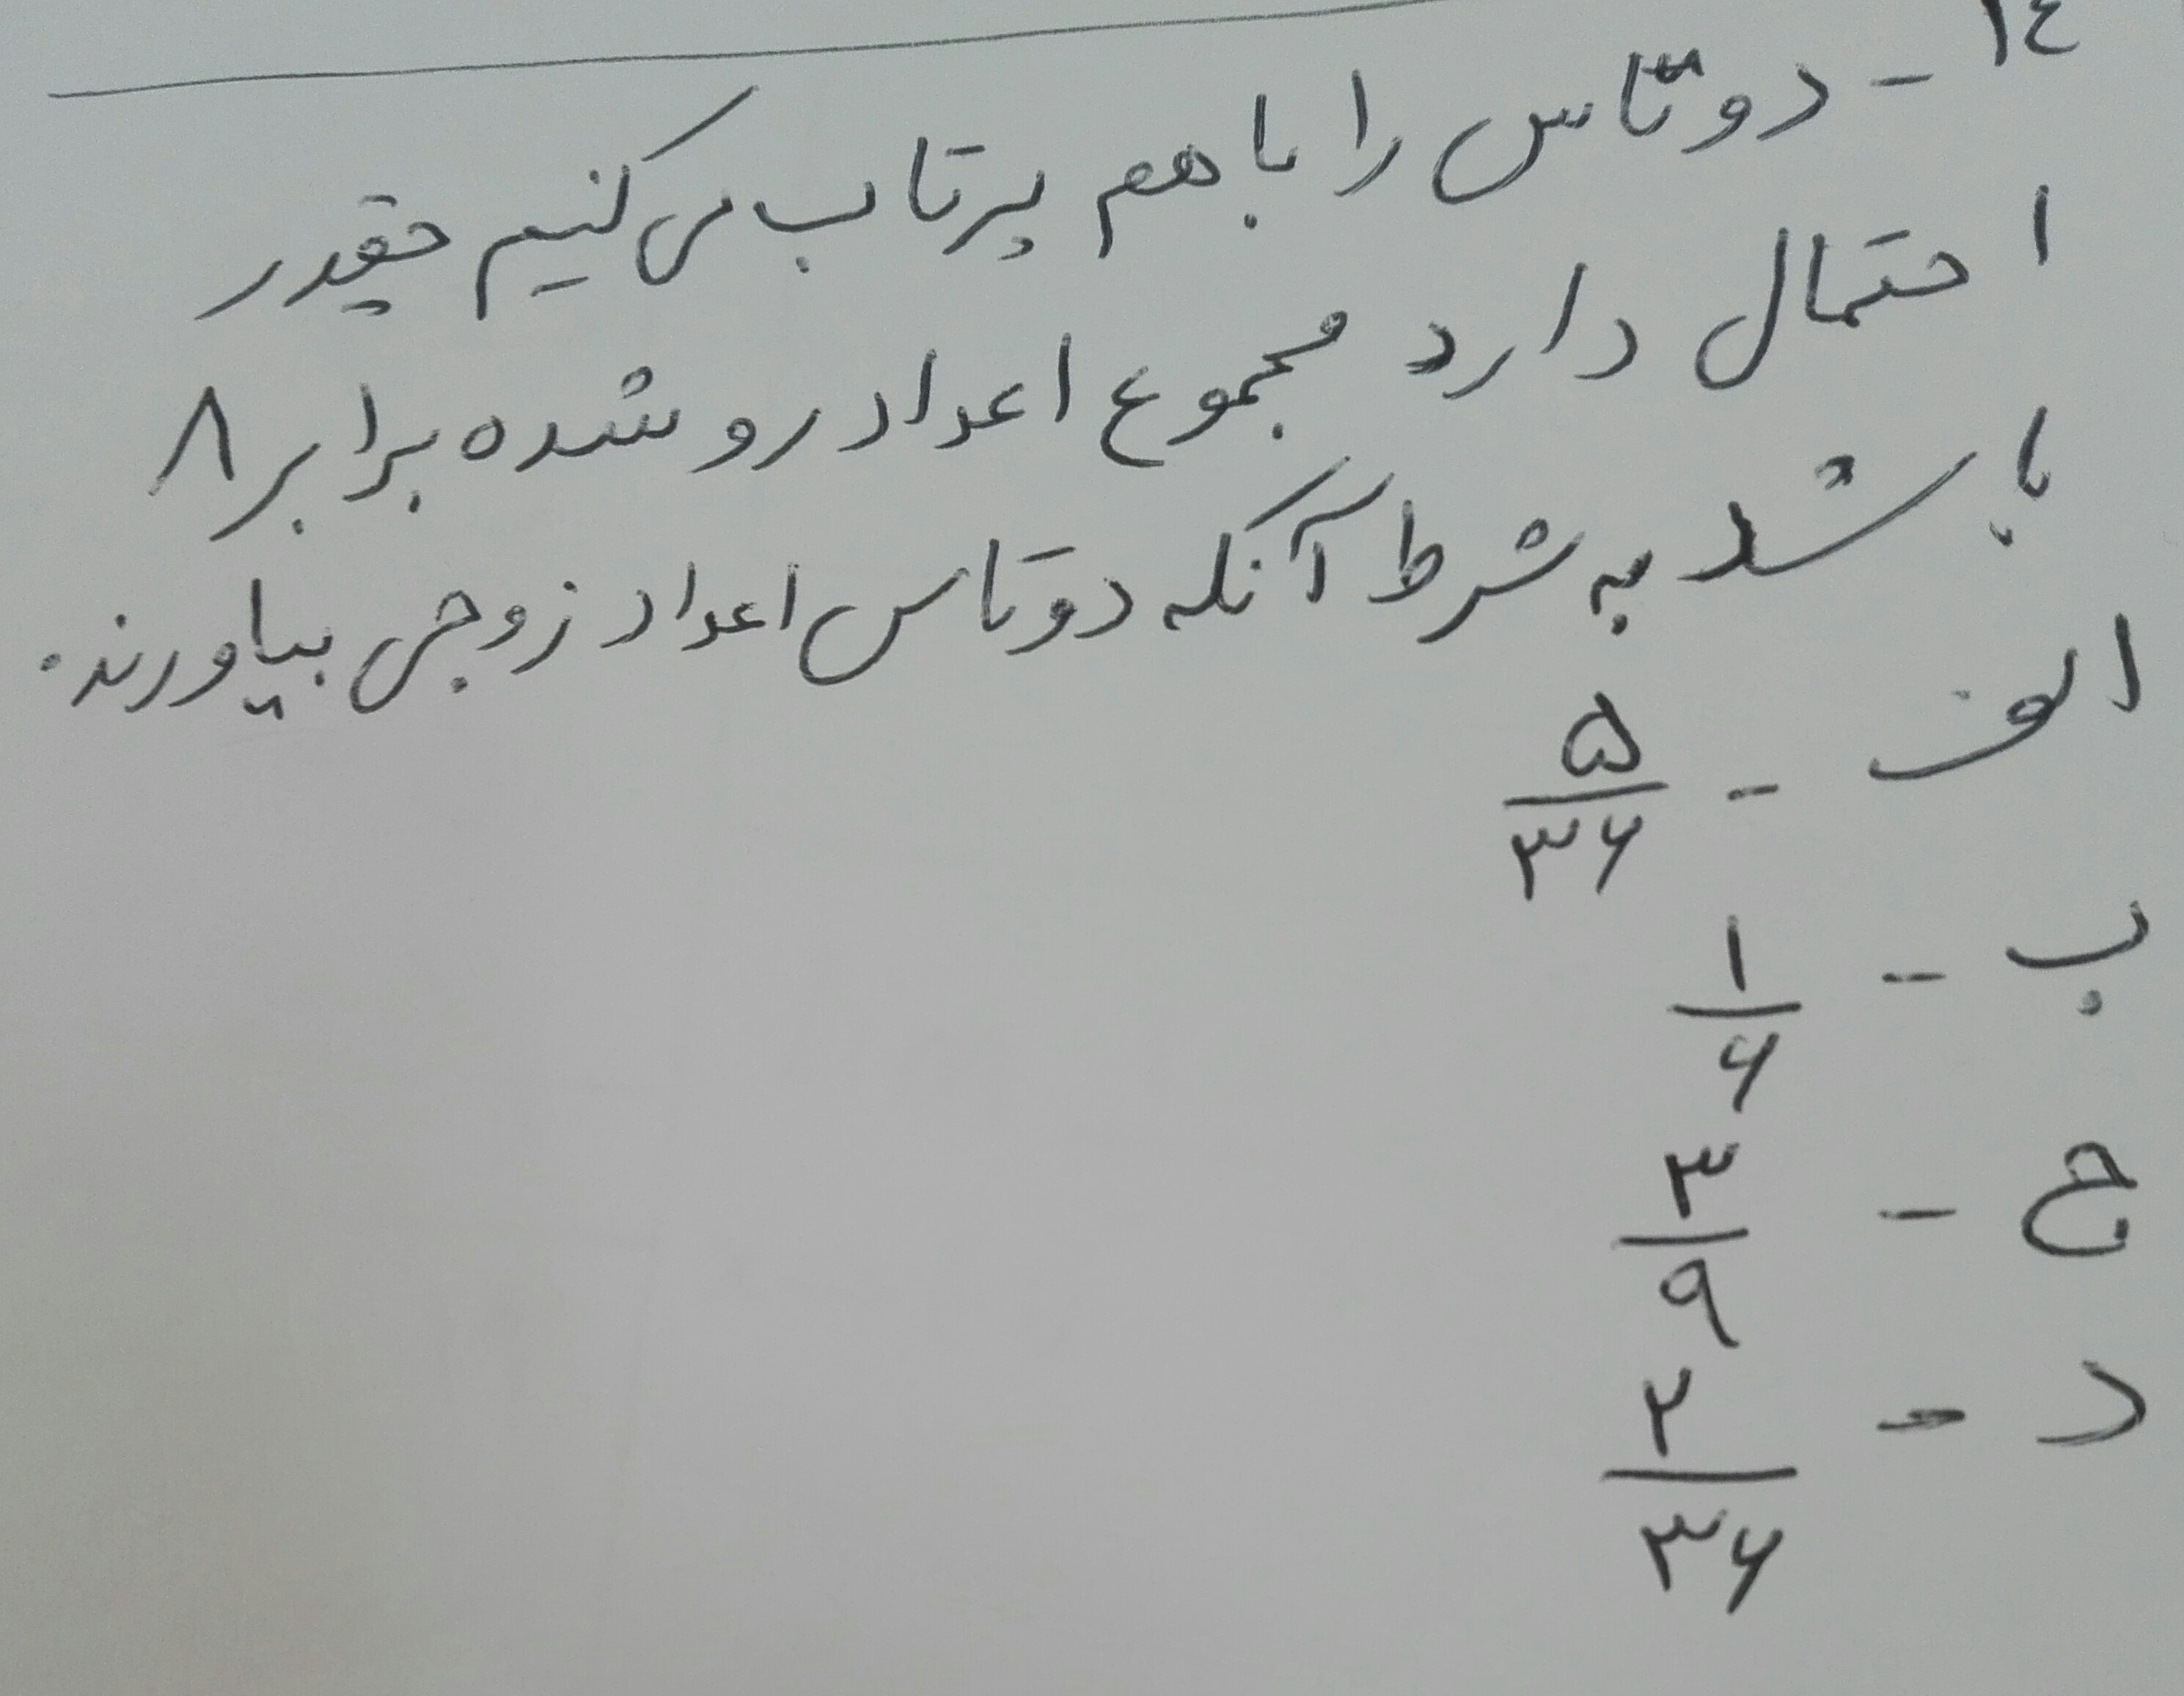 ۱٤ - دو تاس را با هم پرتاب می کنیم چقدر
احتمال دارد مجموع اعداد رو شده برابر ۸
باشد به شرط آنکه دو تاس اعداد زوجی بیاورند.
الف - ۵/۳۶
ب - ۱/۶
ج - ۳/۹
د - ۲/۳۶